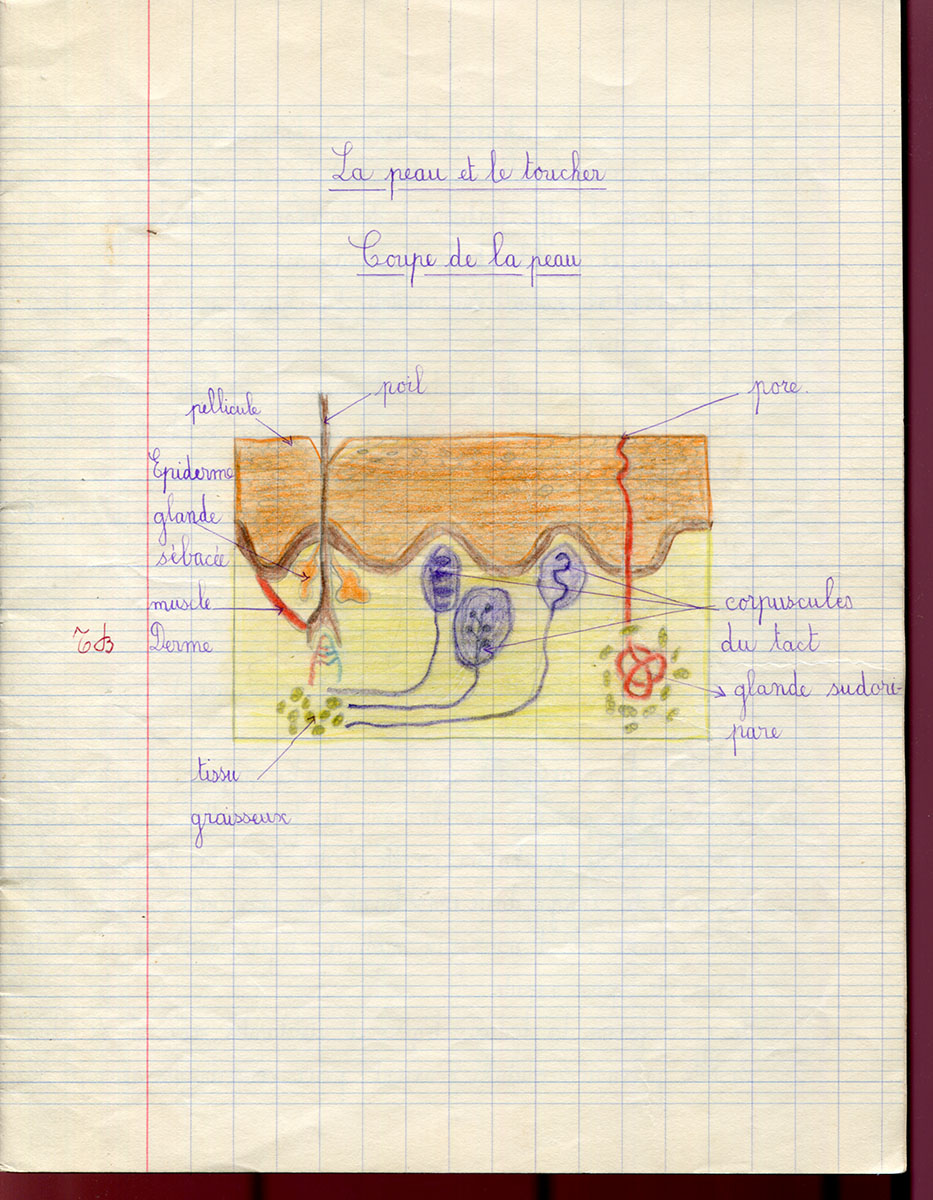 La peau et le toucher
Coupe de la peau
poil
pore.
pellicule
Epiderme
glande
sébacée
muscle
corpuscules
TB
Derme
du tact
glande sudori-
pare
tissu
graisseux